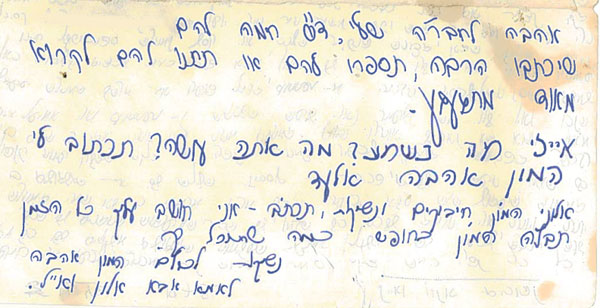 אהבה לחברה שלי, דש חמה להם
שיכתבו הרבה, תספרו להם או תתנו להם לקרוא
מאוד מתגעגע.
אייל מה נשמע? מה אתה עושה? תכתוב לי
המון אהבה אלעד
אלוני המון חיבוקים ונשיקות, תכתוב - אני חושב עליך כל הזמן
תבלה המון בחופש כמה שתוכל
נשיקות לכולם המון אהבה
לאמא אבא אלון ואייל.